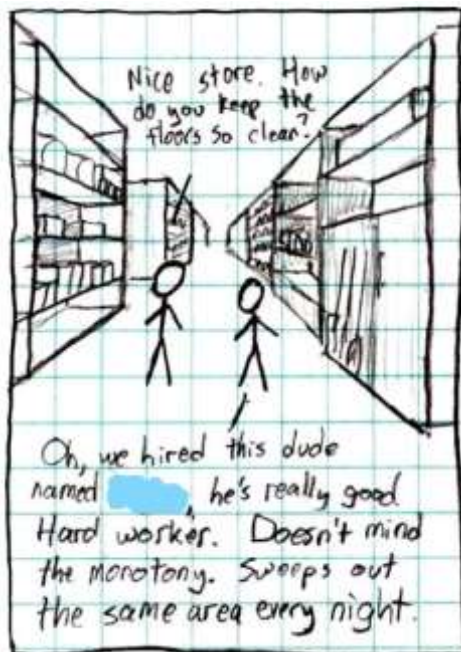 Nice store. How
do you keep the
floors so clean?
Oh, we hired this dude
named , he's really good.
Hard worker. Doesn't mind
the monotony. Sweeps out
the same area every night.